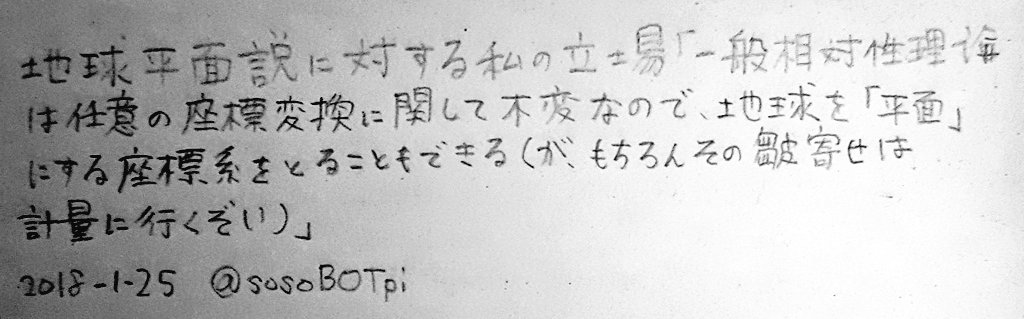 地球平面説に対する私の立場「一般相対性理論
は任意の座標変換に関して不変なので、地球を「平面」
にする座標系をとることもできる(が、もちろんその皺寄せは
計量に行くぞい)」
2018-1-25 @sosoBOTpi